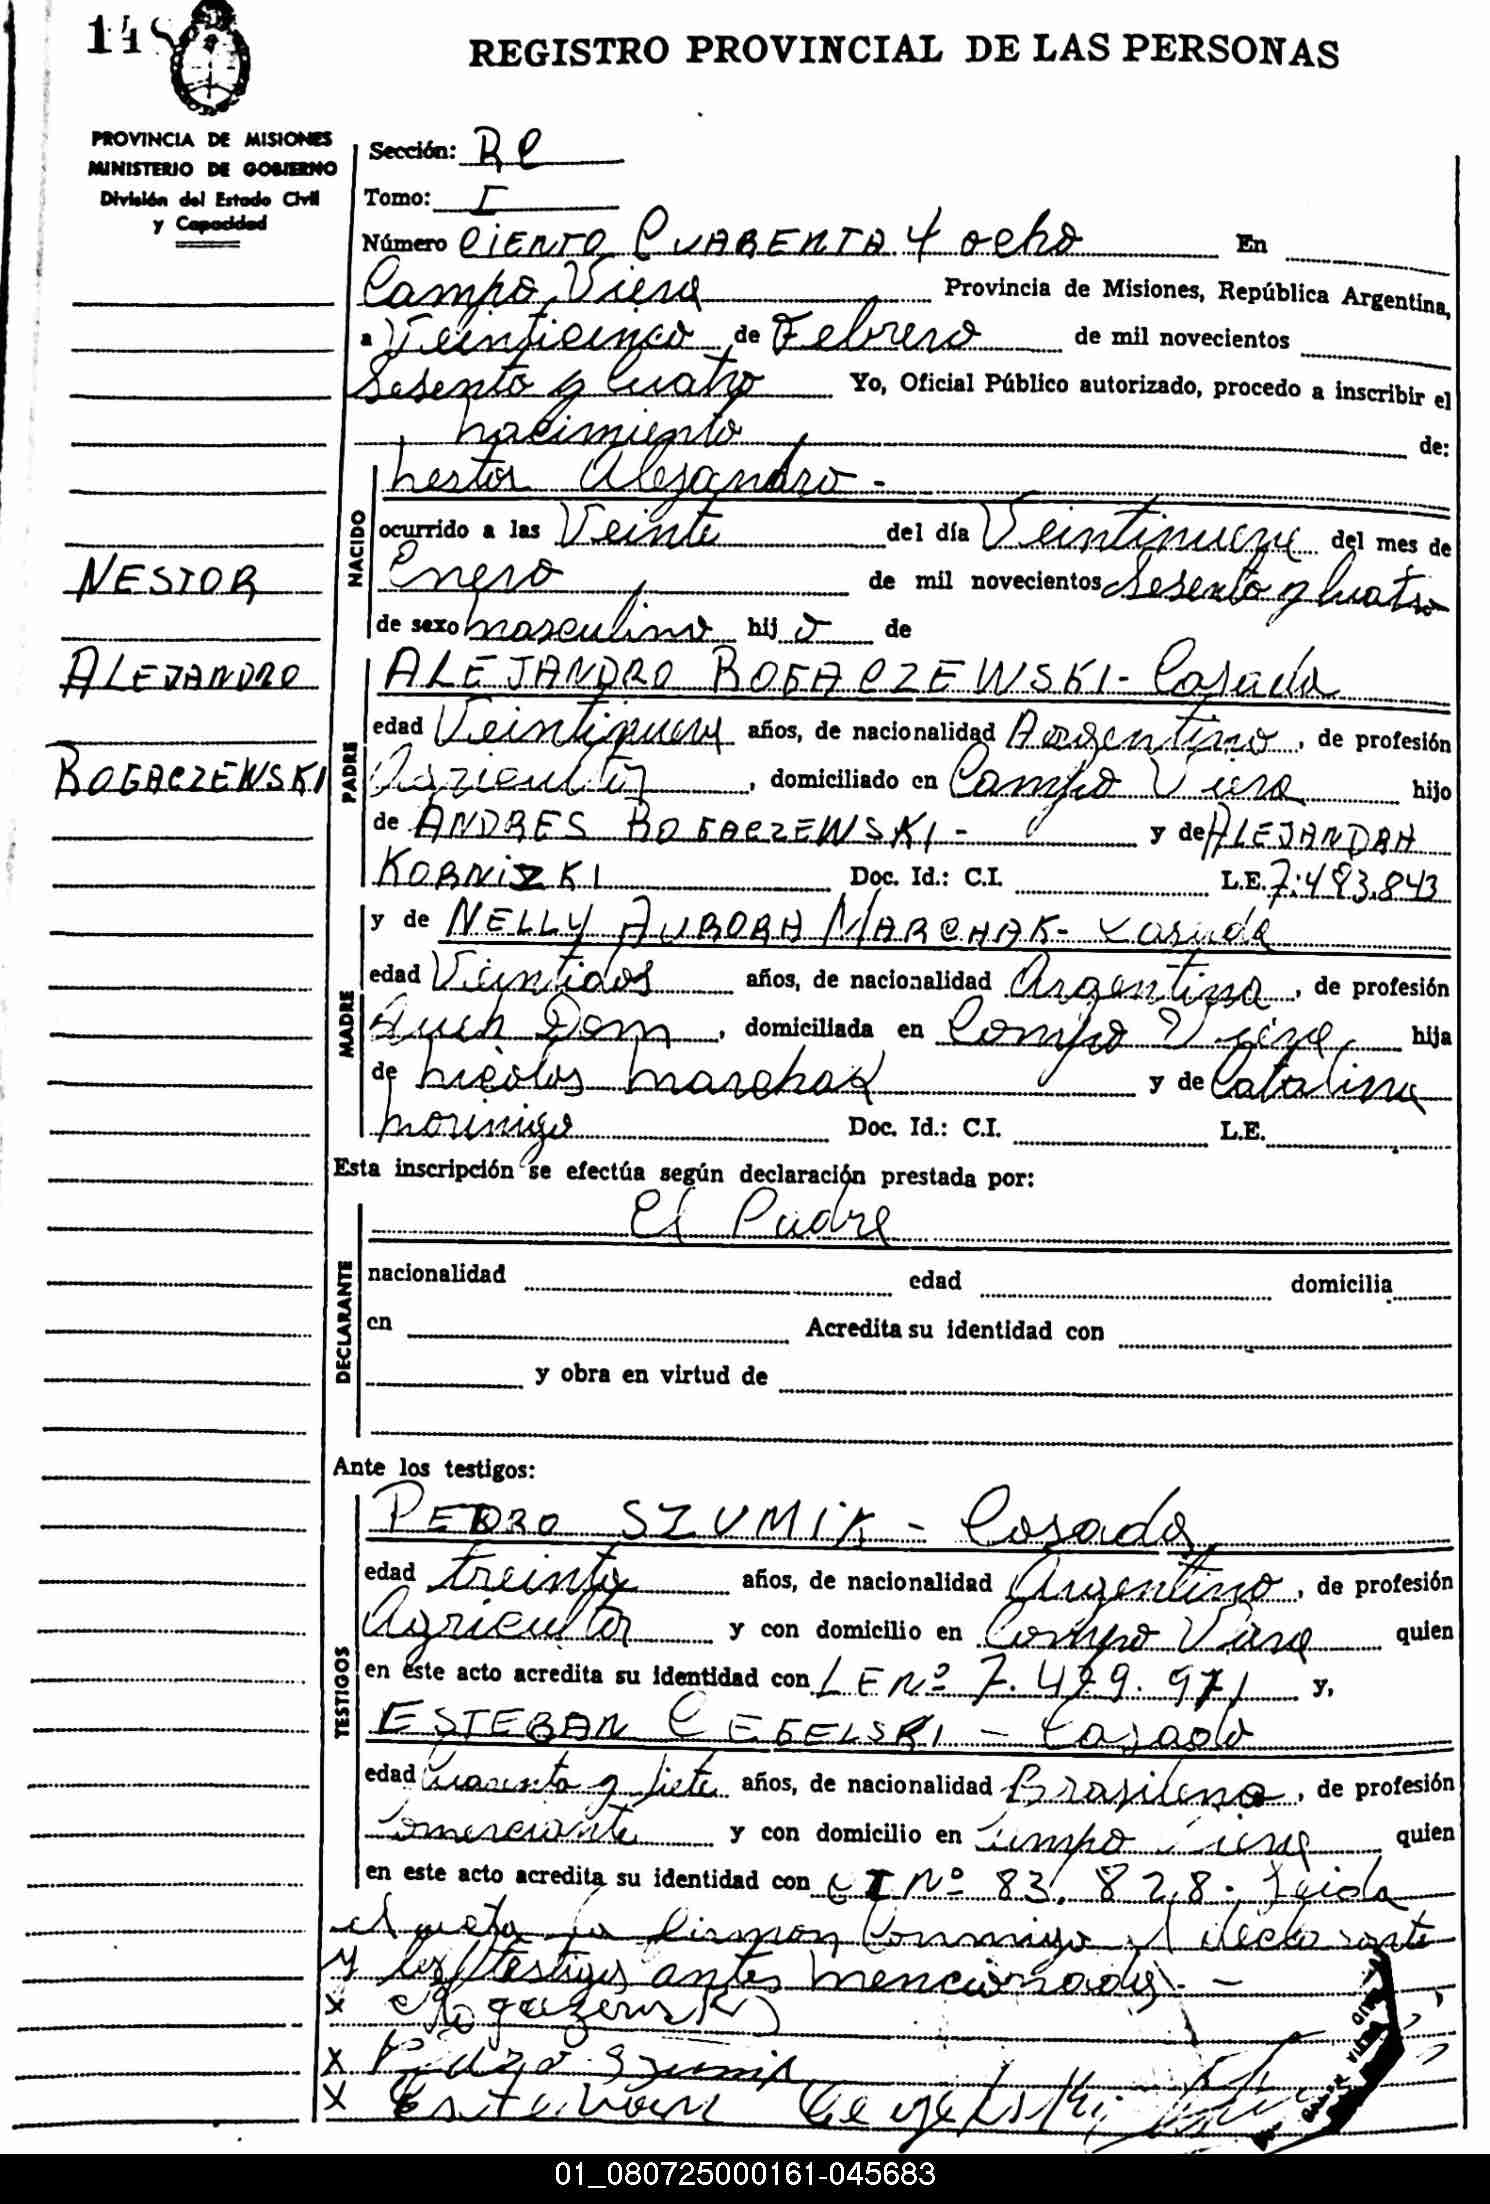 148
REGISTRO PROVINCIAL DE LAS PERSONAS
PROVINCIA DE MISIONES
MINISTERIO DE GOBIERNO
División del Estado Civil
y Capacidad
NESTOR
ALEJANDRO
BOGACZEWSKI
Sección: RC
Tomo: I
Número CIENTO CUARENTA Y ocho En
Campo Viera Provincia de Misiones, República Argentina,
a Veinticinco de Febrero de mil novecientos
Sesenta y Cuatro Yo, Oficial Público autorizado, procedo a inscribir el
nacimiento de:
NACIDO
Nestor Alejandro -
ocurrido a las Veinte del día Veintinueve del mes de
Enero de mil novecientos Sesenta y Cuatro
de sexo masculino hijo de
PADRE
ALEJANDRO BOGACZEWSKI - Casado
edad Veintinueve años, de nacionalidad Argentino, de profesión
Agricultor, domiciliado en Campo Viera hijo
de ANDRES BOGACZEWSKI - y de ALEJANDRA
KORNIZKI Doc. Id.: C.I. L.E. 7.483.843
MADRE
y de NELLY AURORA MARCHAK - Casada
edad Veintidos años, de nacionalidad Argentina, de profesión
Queh Dom, domiciliada en Campo Viera hija
de Nicolas Marchak y de Catalina
Morinigo Doc. Id.: C.I. L.E.
Esta inscripción se efectúa según declaración prestada por:
DECLARANTE
El Padre
nacionalidad edad domicilia
en Acredita su identidad con
y obra en virtud de
Ante los testigos:
TESTIGOS
PEDRO SZUMIK - Casado
edad treinta años, de nacionalidad Argentino, de profesión
Agricultor y con domicilio en Campo Viera quien
en este acto acredita su identidad con LE Nº 7.479.971 y,
ESTEBAN CEGELSKI - Casado
edad Cuarenta y siete años, de nacionalidad Brasileno, de profesión
Comerciante y con domicilio en Campo Viera quien
en este acto acredita su identidad con CI Nº 83.828. Leida
el acta la firman Conmigo el declarante
y los testigos antes mencionados -
x
x Pedro Szumik
x Esteban Cegelski
01_080725000161-045683